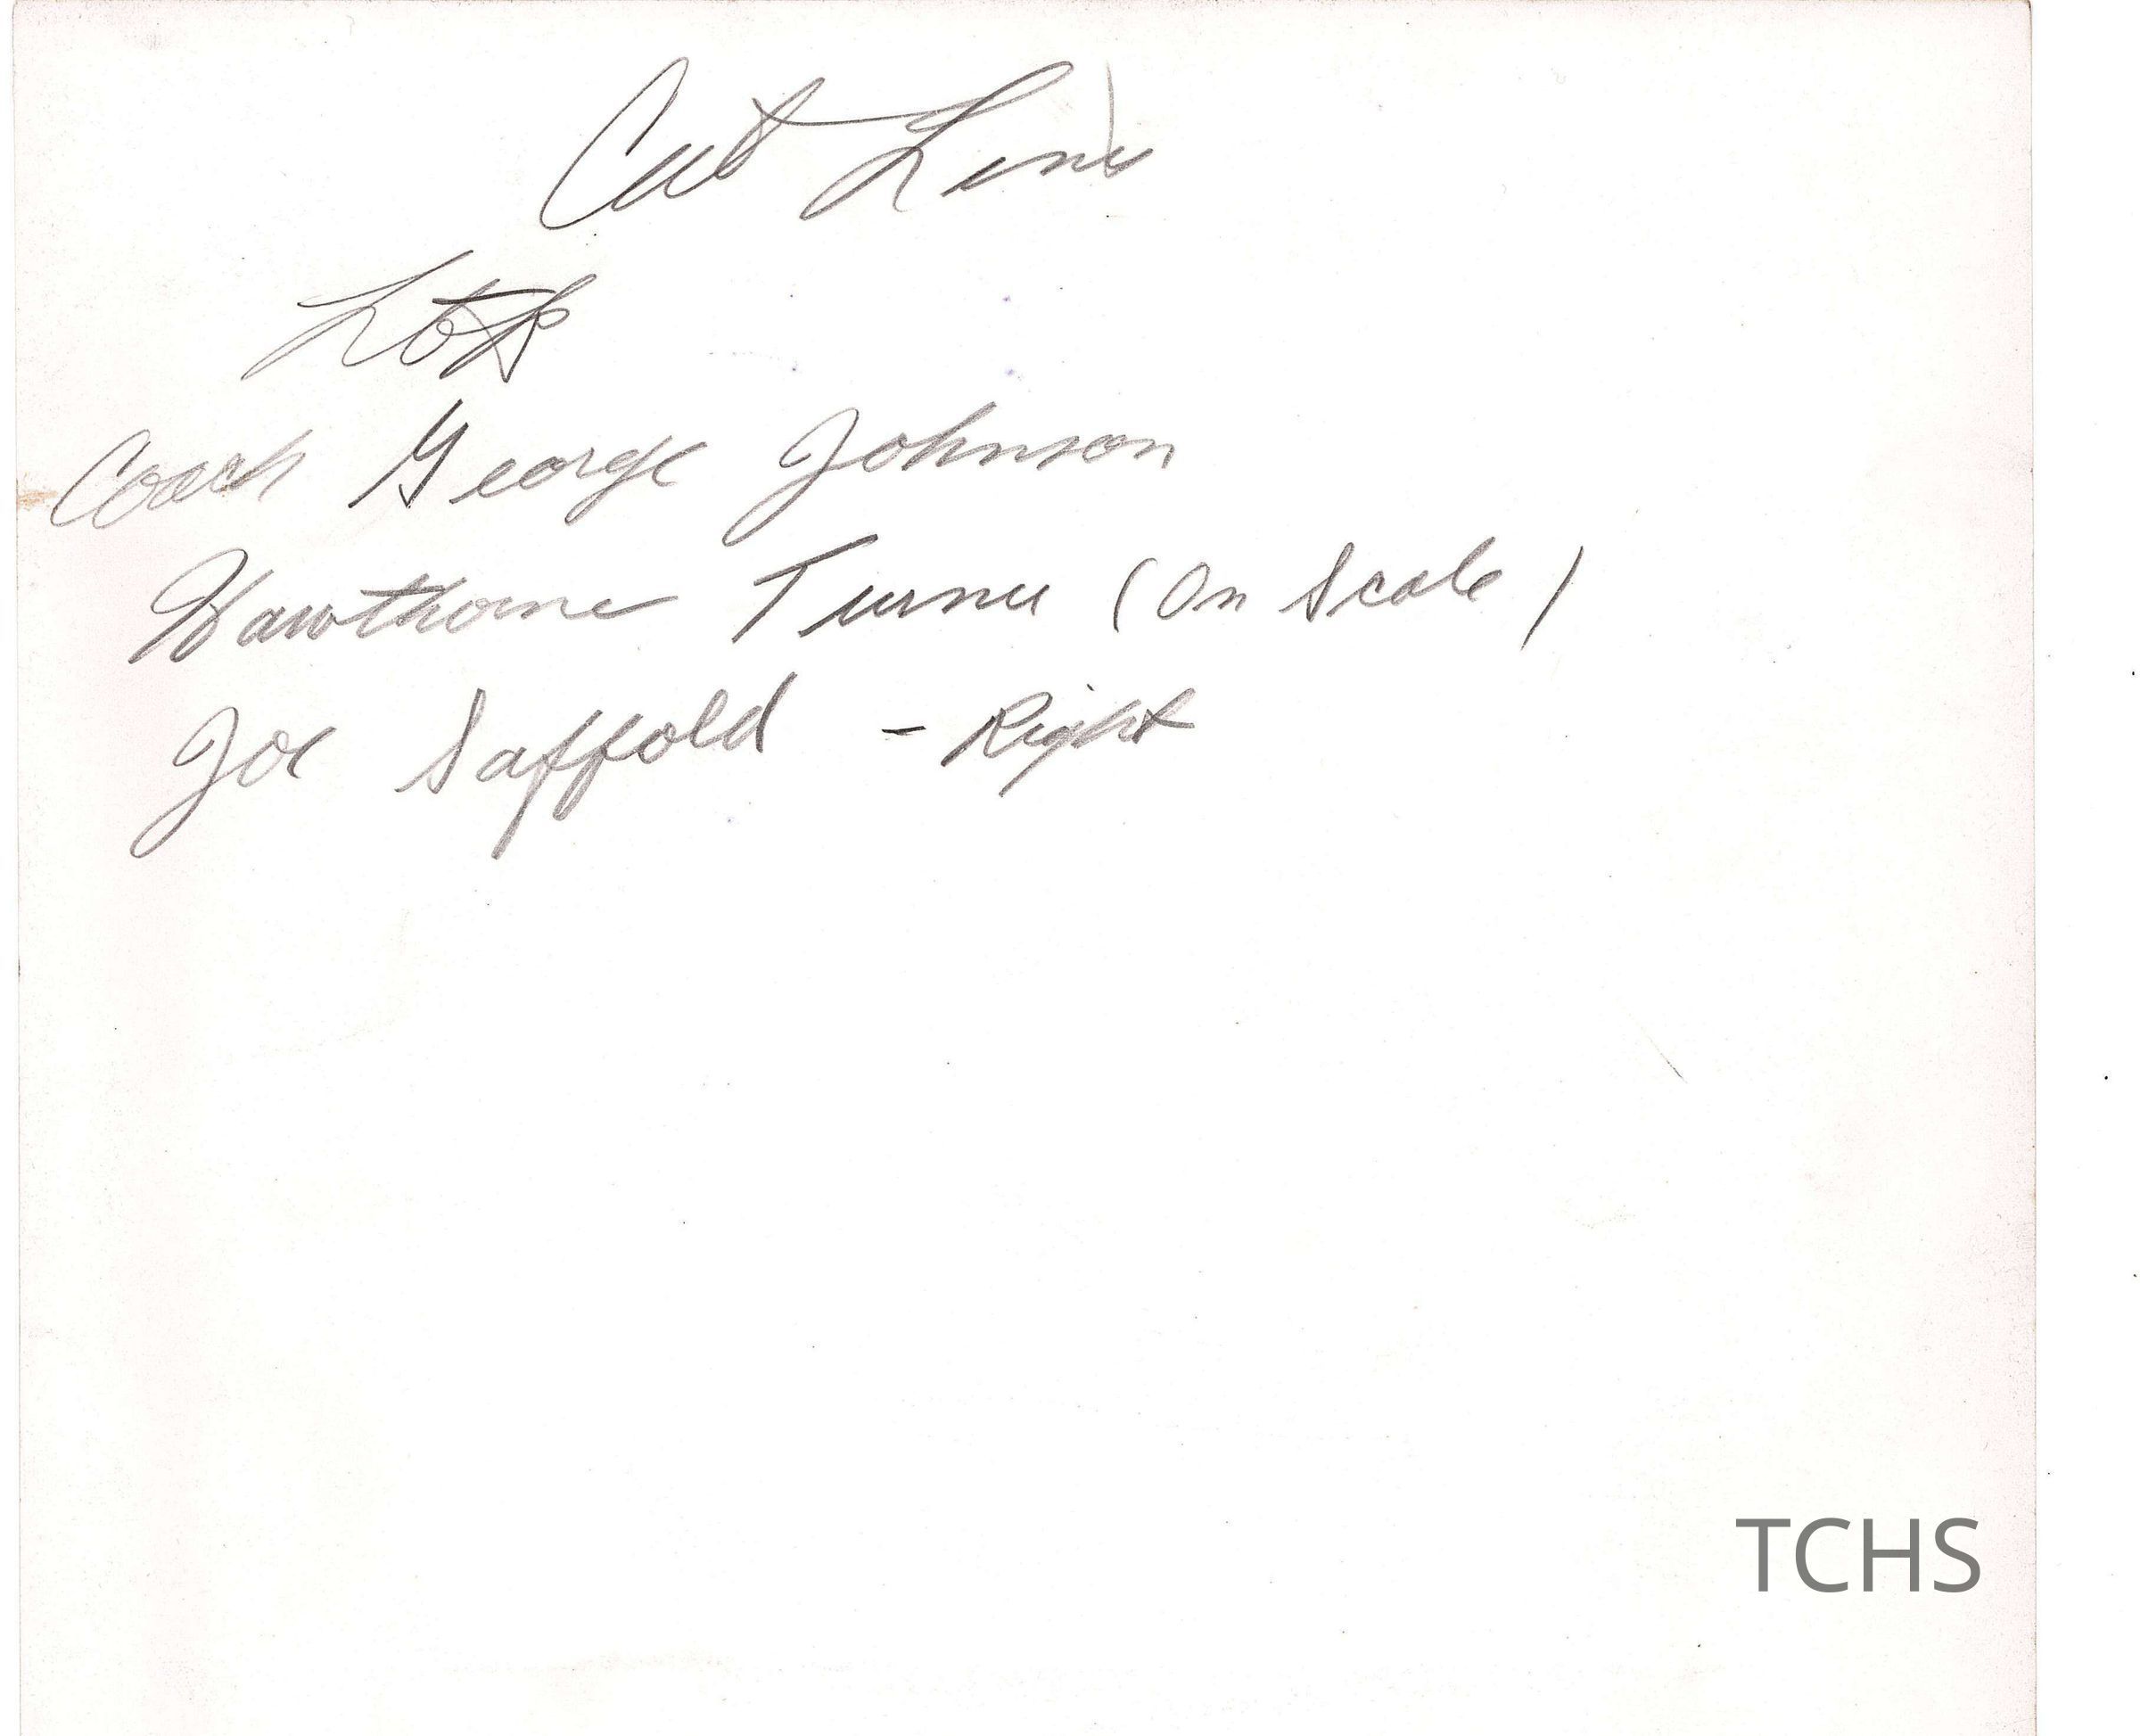 Cut Line
L to R
Coach George Johnson
Hawthorne Turner (On Scale)
Joe Saffold - Right
TCHS